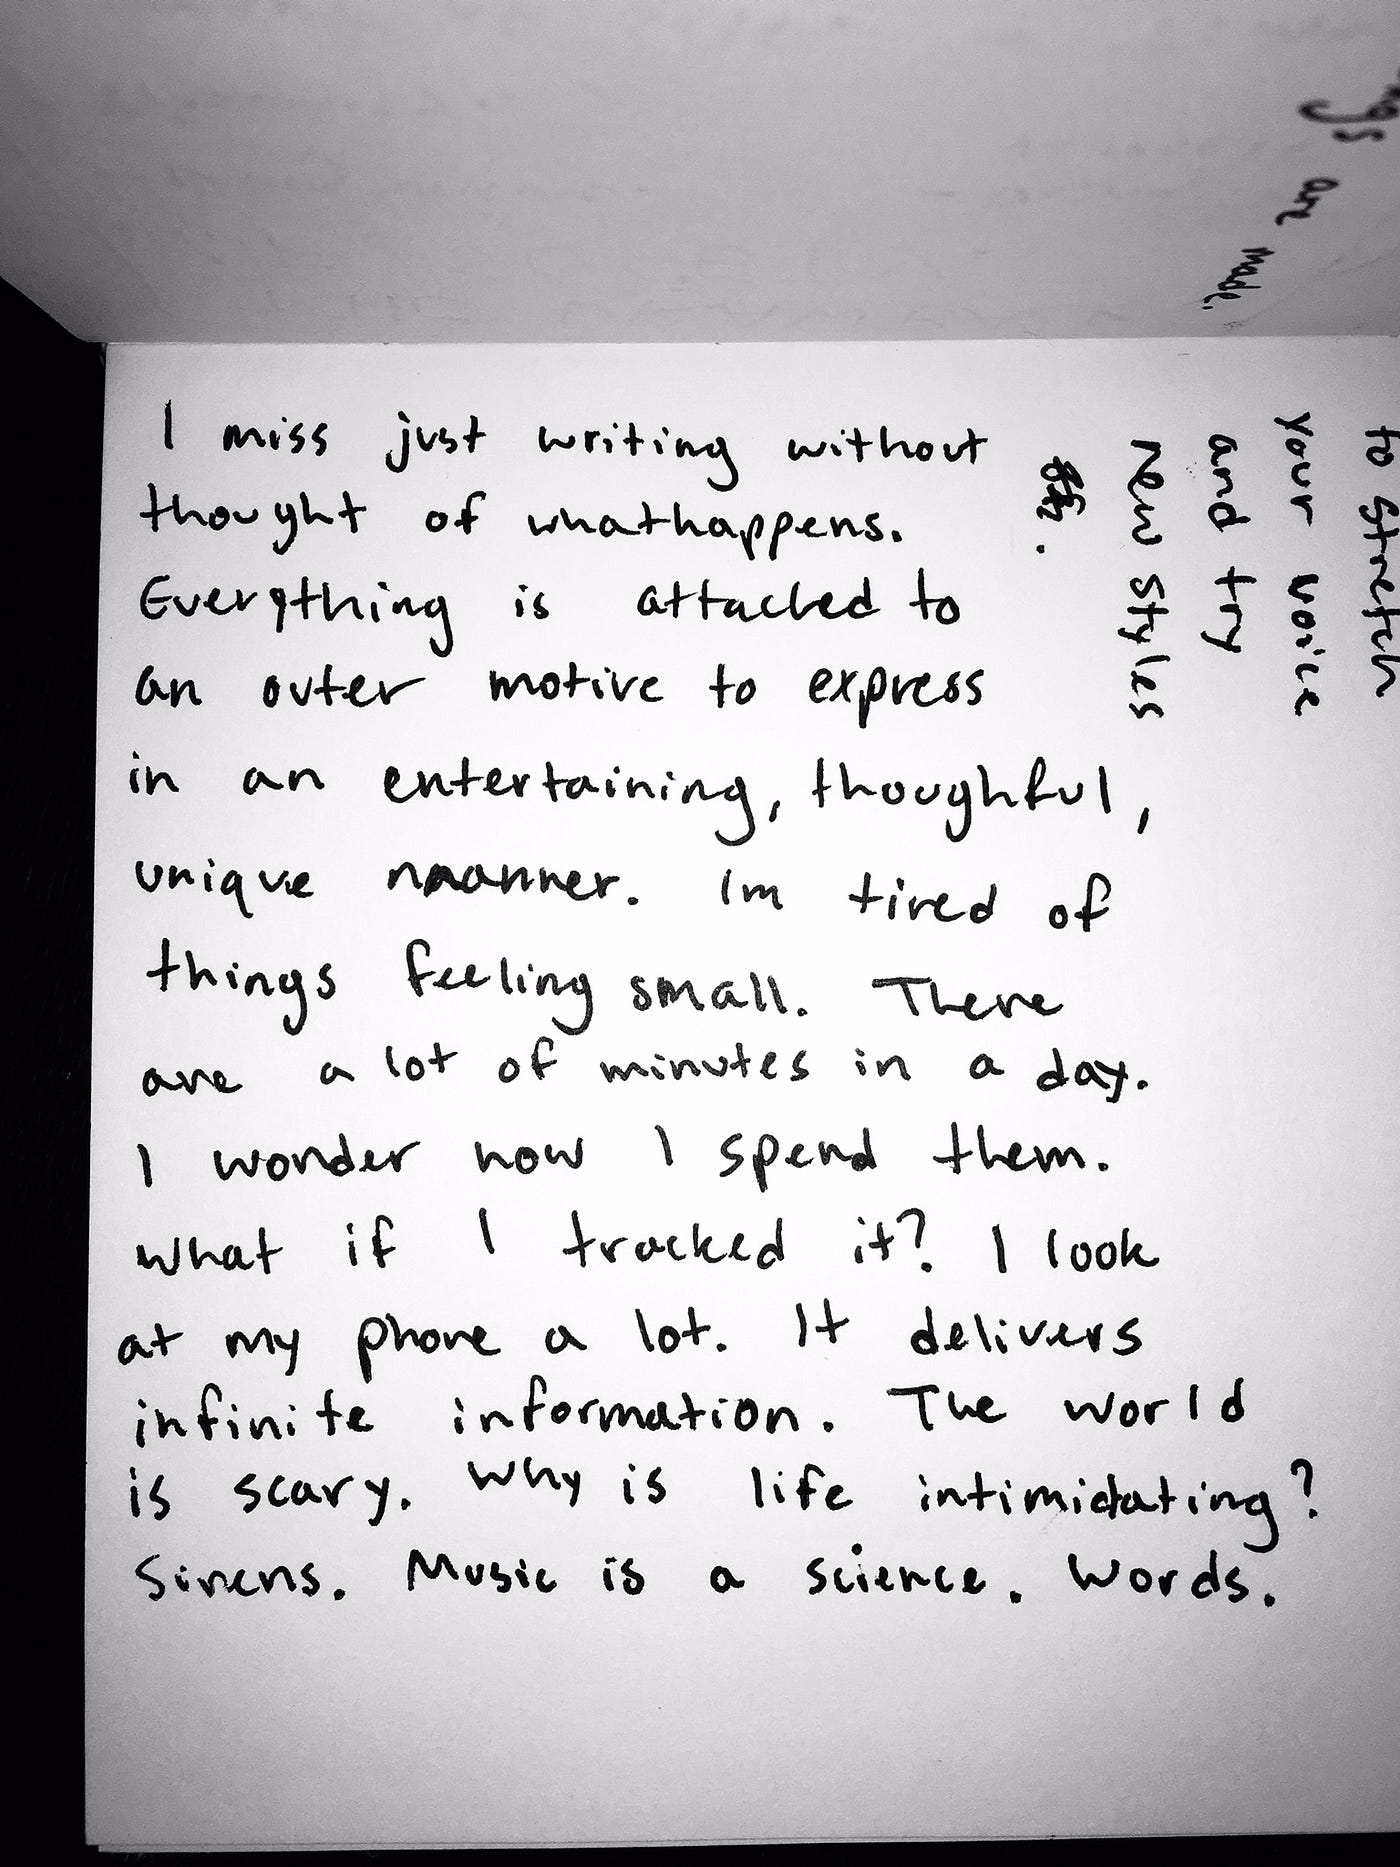 I miss just writing without
thought of whathappens.
Everything is attached to
an outer motive to express
in an entertaining, thoughful,
unique manner. Im tired of
things feeling small. There
are a lot of minutes in a day.
I wonder how I spend them.
What if I tracked it? I look
at my phone a lot. It delivers
infinite information. The world
is scary. Why is life intimidating?
Sirens. Music is a science. Words.
to stretch
your voice
and try
new styles
are made.